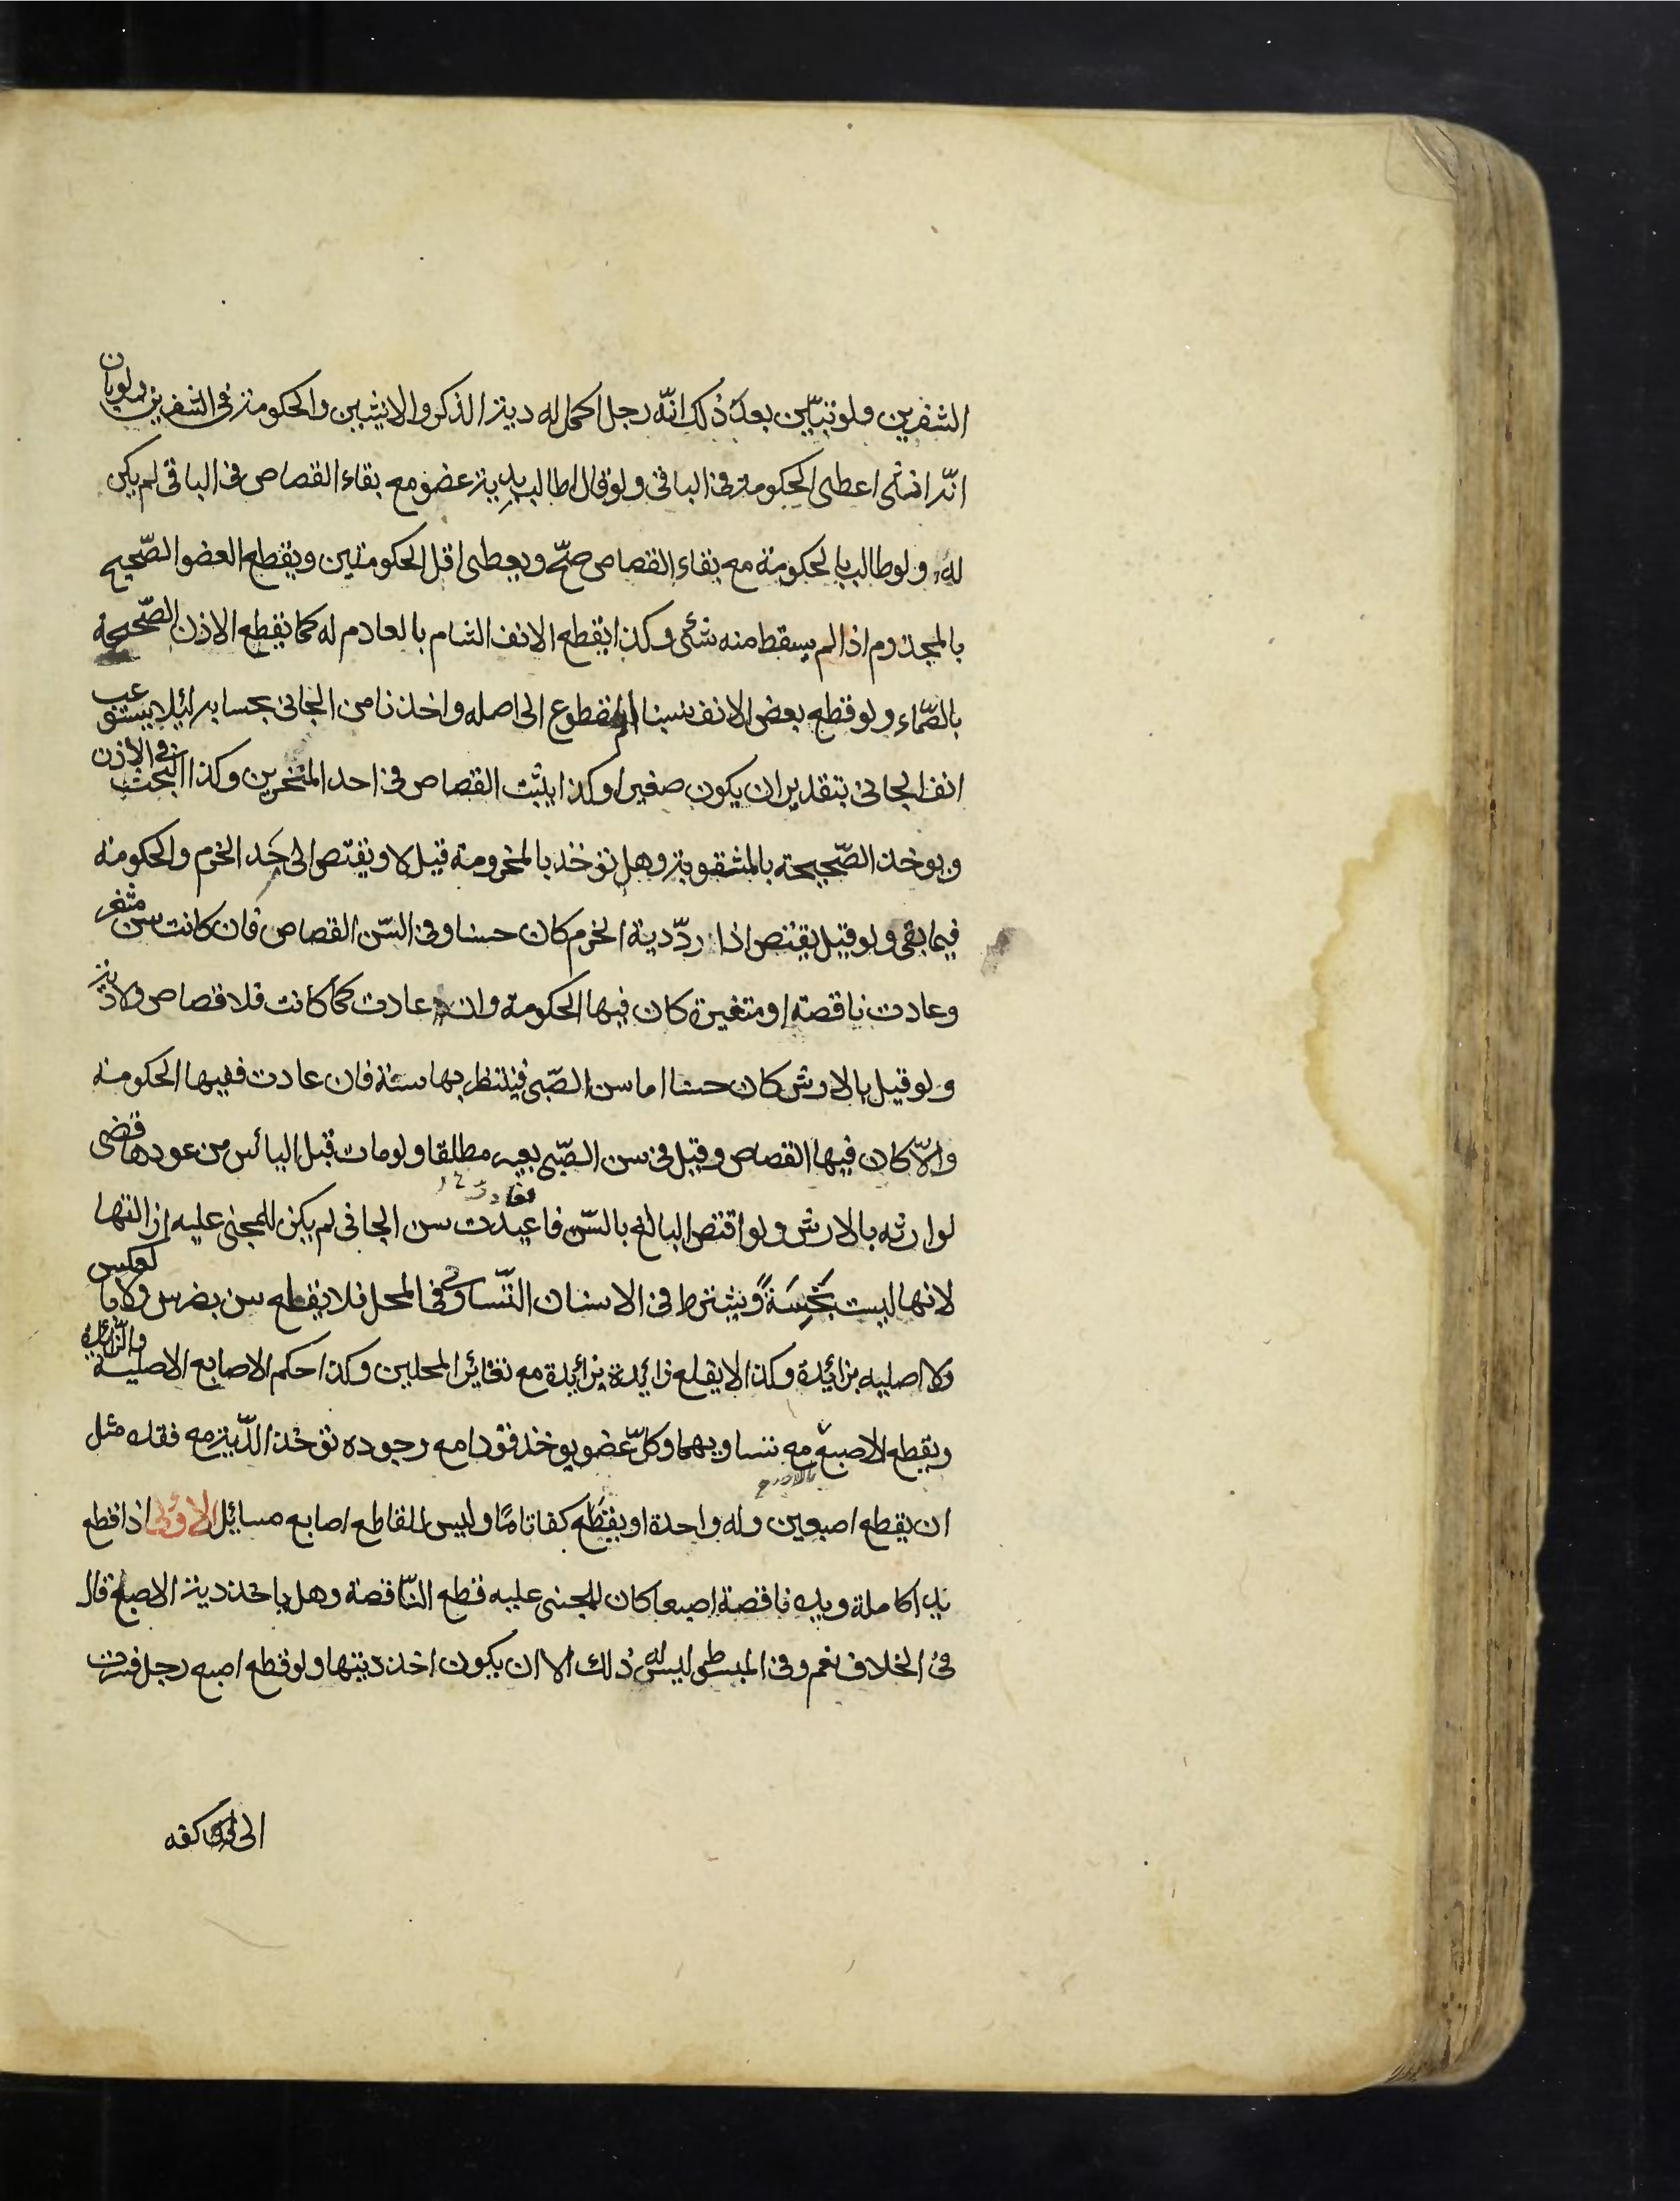 الشفرين ولو تبيّن بعد ذلك انّه رجل اكمل له دية الذكر والانثيين والحكومة فى الشفرين ولو بان
انّه انثى اعطى الحكومة فى الباقى ولو قال اطالب بدية عضو مع بقاء القصاص فى الباقى لم يكن
له ولو طالب بالحكومة مع بقاء القصاص صحّ ويعطى اقل الحكومتين ويقطع العضو الصّحيح
بالمجذوم اذا لم يسقط منه شئى وكذا يقطع الانف الشام بالعادم له كما يقطع الاذن الصّحيحة
بالصّماء ولو قطع بعض الانف نسبنا المقطوع الى اصله واخذنا من الجانى بحسابه لئيلا يستوعب
انف الجانى بتقدير ان يكون صغيرا وكذا يثبت القصاص فى احد المنخرين وكذا البحث فى الاذن
ويوخذ الصّحيحة بالمثقوبة وهل توخذ بالمخرومة قيل لا ويقتص الى حد الخرم والحكومة
فيما بقى ولو قيل يقتص اذا ردّ دية الخرم كان حسنا وفى السّن القصاص فان كانت سن مثغر
وعادت ناقصة او متغيرة كان فيها الحكومة وان عادت كما كانت فلا قصاص ولا دية
ولو قيل بالارش كان حسنا اما سن الصّبى فينتظر بها سنة فان عادت ففيها الحكومة
والّا كان فيها القصاص وقيل فى سن الصّبى بعير مطلقا ولو مات قبل اليائس من عودها قضى
لوارثه بالارش ولو اقتص البالغ بالسّن فاعيدت سن الجانى لم يكن للمجنى عليه ازالتها
لانها ليست بجنسه ويشترط فى الاسنان التّساوى فى المحل فلا يقطع سن بضرس ولا بالعكس
ولا اصليه بزائدة وكذا لا يقلع زائدة بزائدة مع تغائر المحلين وكذا حكم الاصابع الاصلية والزّائدة
ويقطع الاصبع بالاصبع مع تساويهما وكلّ عضو يوخذ قودا مع وجوده توخذ الدّية مع فقده مثل
ان يقطع اصبعين وله واحدة او يقطع كفا تامّا وليس للقاطع اصابع مسائل الاولى اذا قطع
يدا كاملة ويده ناقصة اصبعا كان للمجنى عليه قطع النّاقصة وهل ياخذ دية الاصبع قال
فى الخلاف نعم وفى المبسوط ليس له ذلك الا ان يكون اخذ ديتها ولو قطع اصبع رجل فسرت
الى كفه